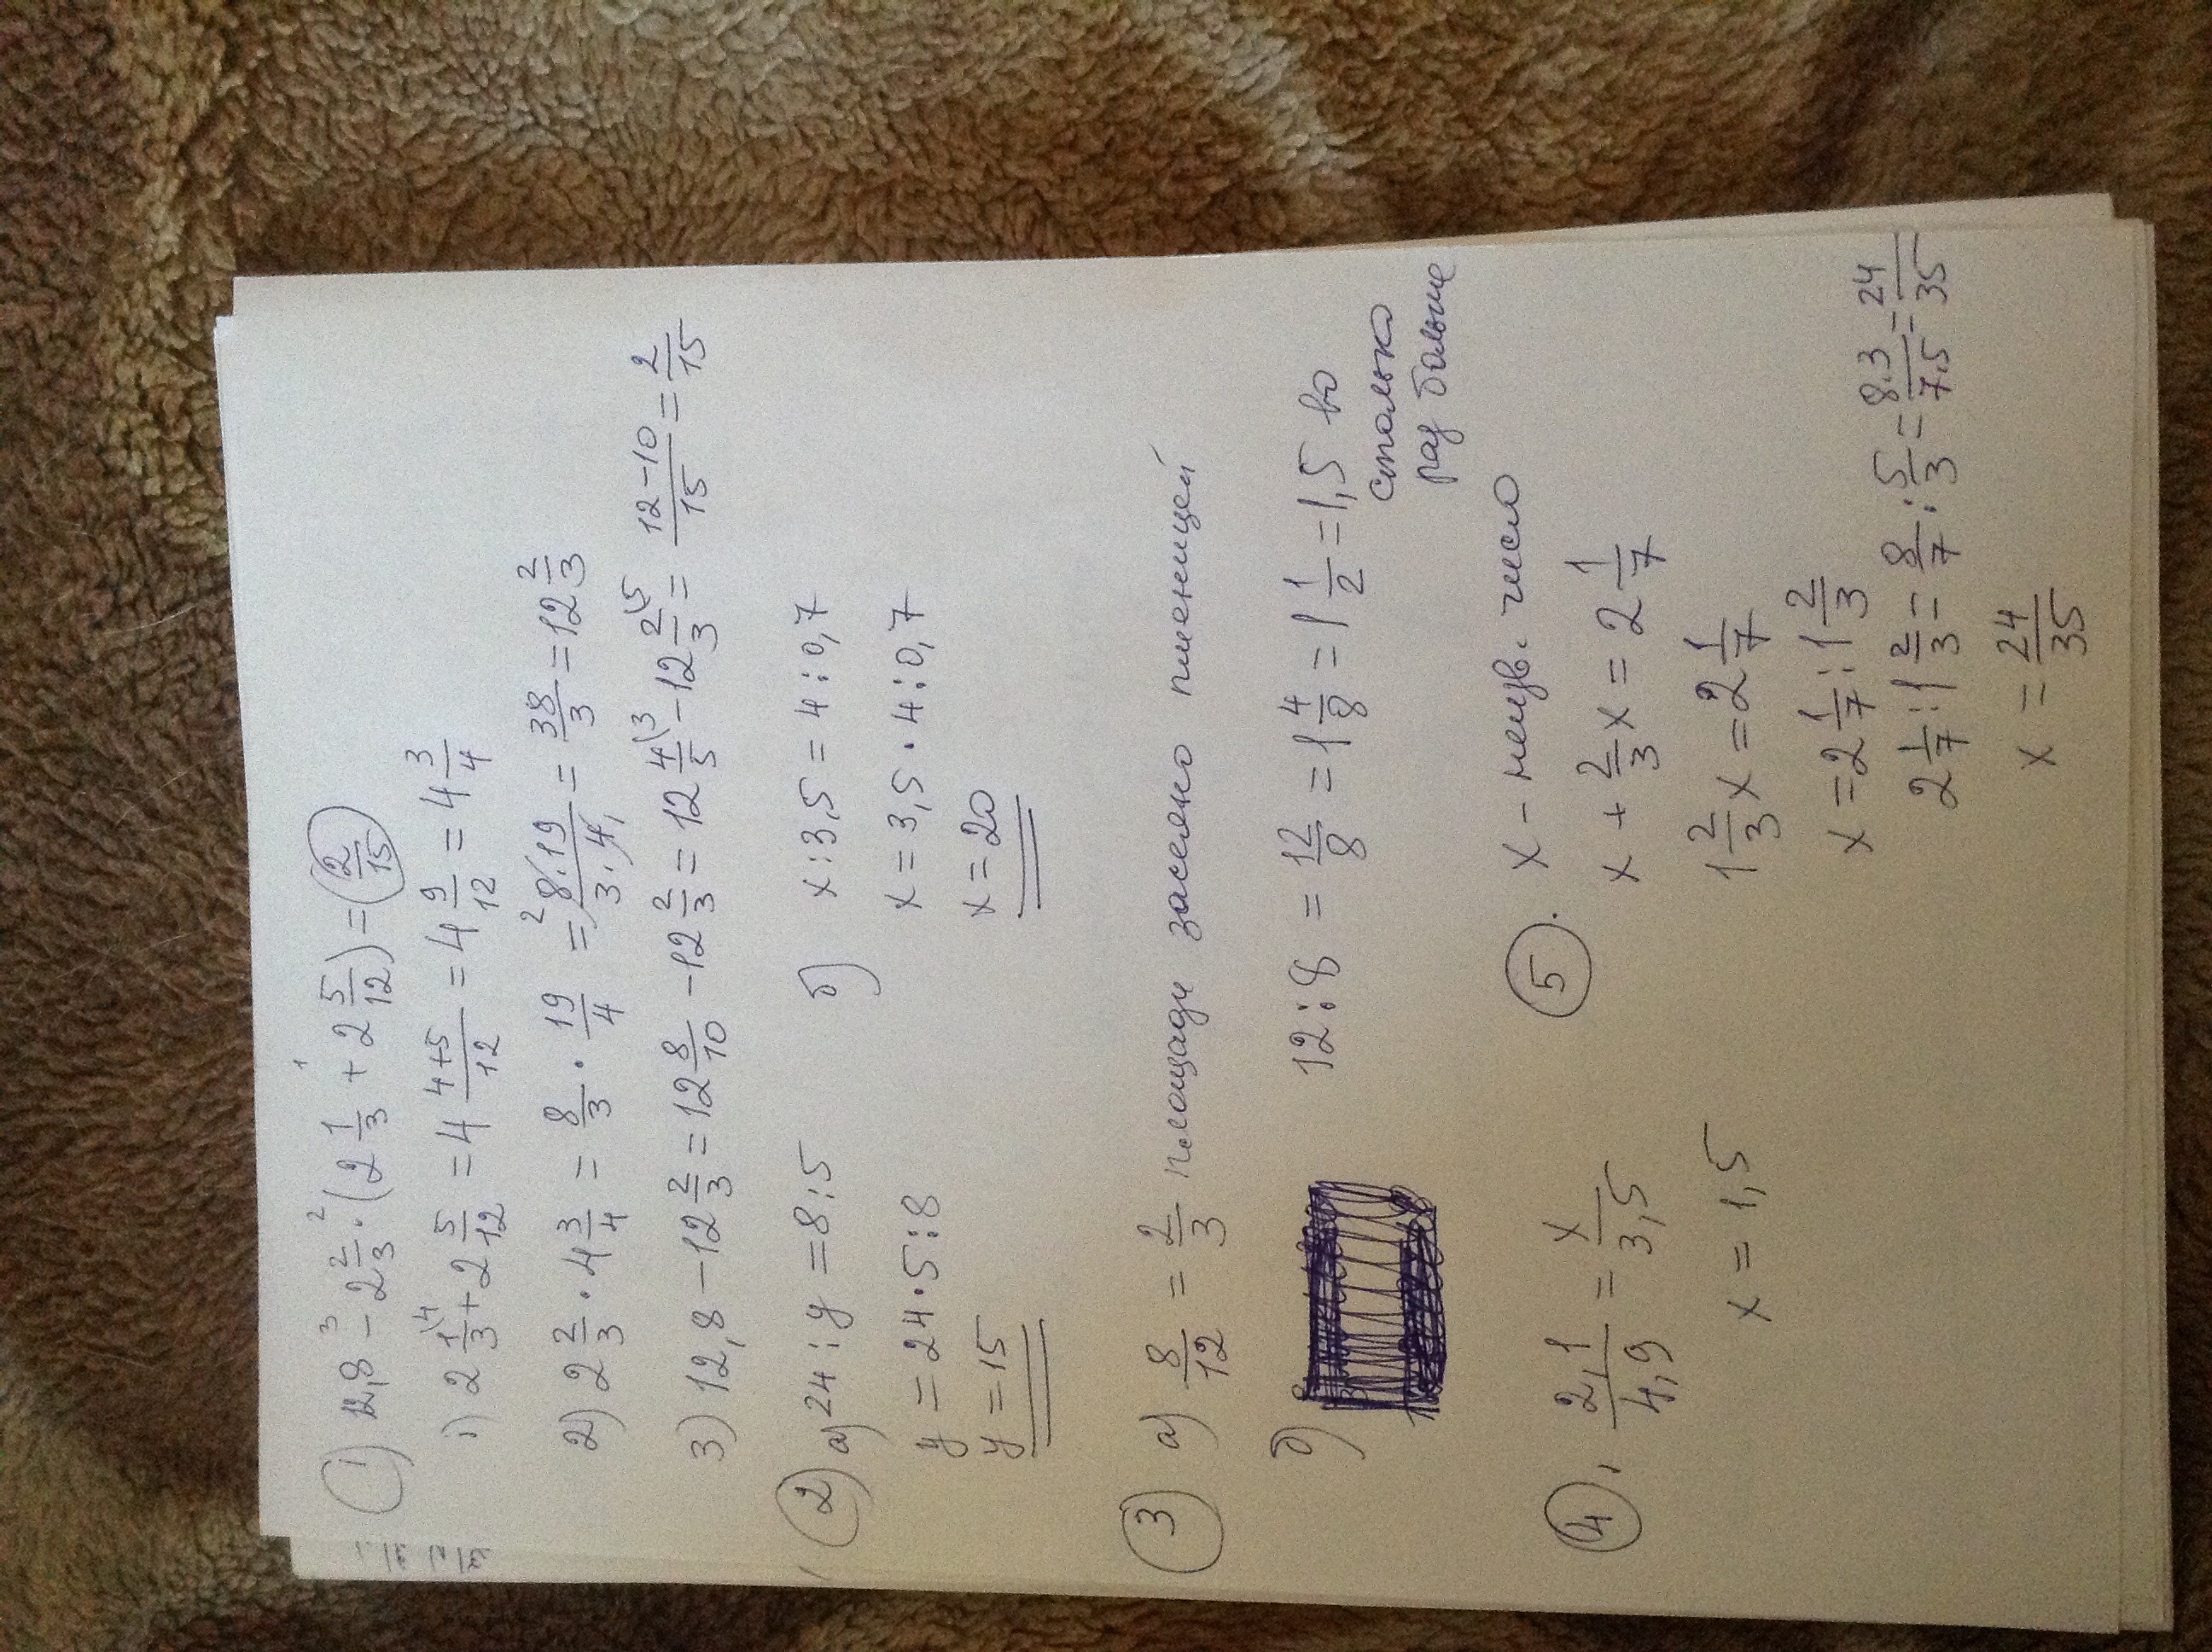 1) 12,8 - 2 2/3 · (2 1/3 + 2 5/12) = 2/15
1) 2 1/3 + 2 5/12 = 4 (4+5)/12 = 4 9/12 = 4 3/4
2) 2 2/3 · 4 3/4 = 8/3 · 19/4 = (8·19)/(3·4) = 38/3 = 12 2/3
3) 12,8 - 12 2/3 = 12 8/10 - 12 2/3 = 12 4/5 - 12 2/3 = (12-10)/15 = 2/15
2) а) 24 : y = 8 : 5
y = 24 · 5 : 8
y = 15
б) x : 3,5 = 4 : 0,7
x = 3,5 · 4 : 0,7
x = 20
3) а) 8/12 = 2/3 площади засеяно пшеницей
б) 12 : 8 = 12/8 = 1 4/8 = 1 1/2 = 1,5 во
столько
раз больше
4) 2,1/4,9 = x/3,5
x = 1,5
5. x - неизв. число
x + 2/3 x = 2 1/7
1 2/3 x = 2 1/7
x = 2 1/7 : 1 2/3
2 1/7 : 1 2/3 = 8/7 : 5/3 = (8·3)/(7·5) = 24/35
x = 24/35